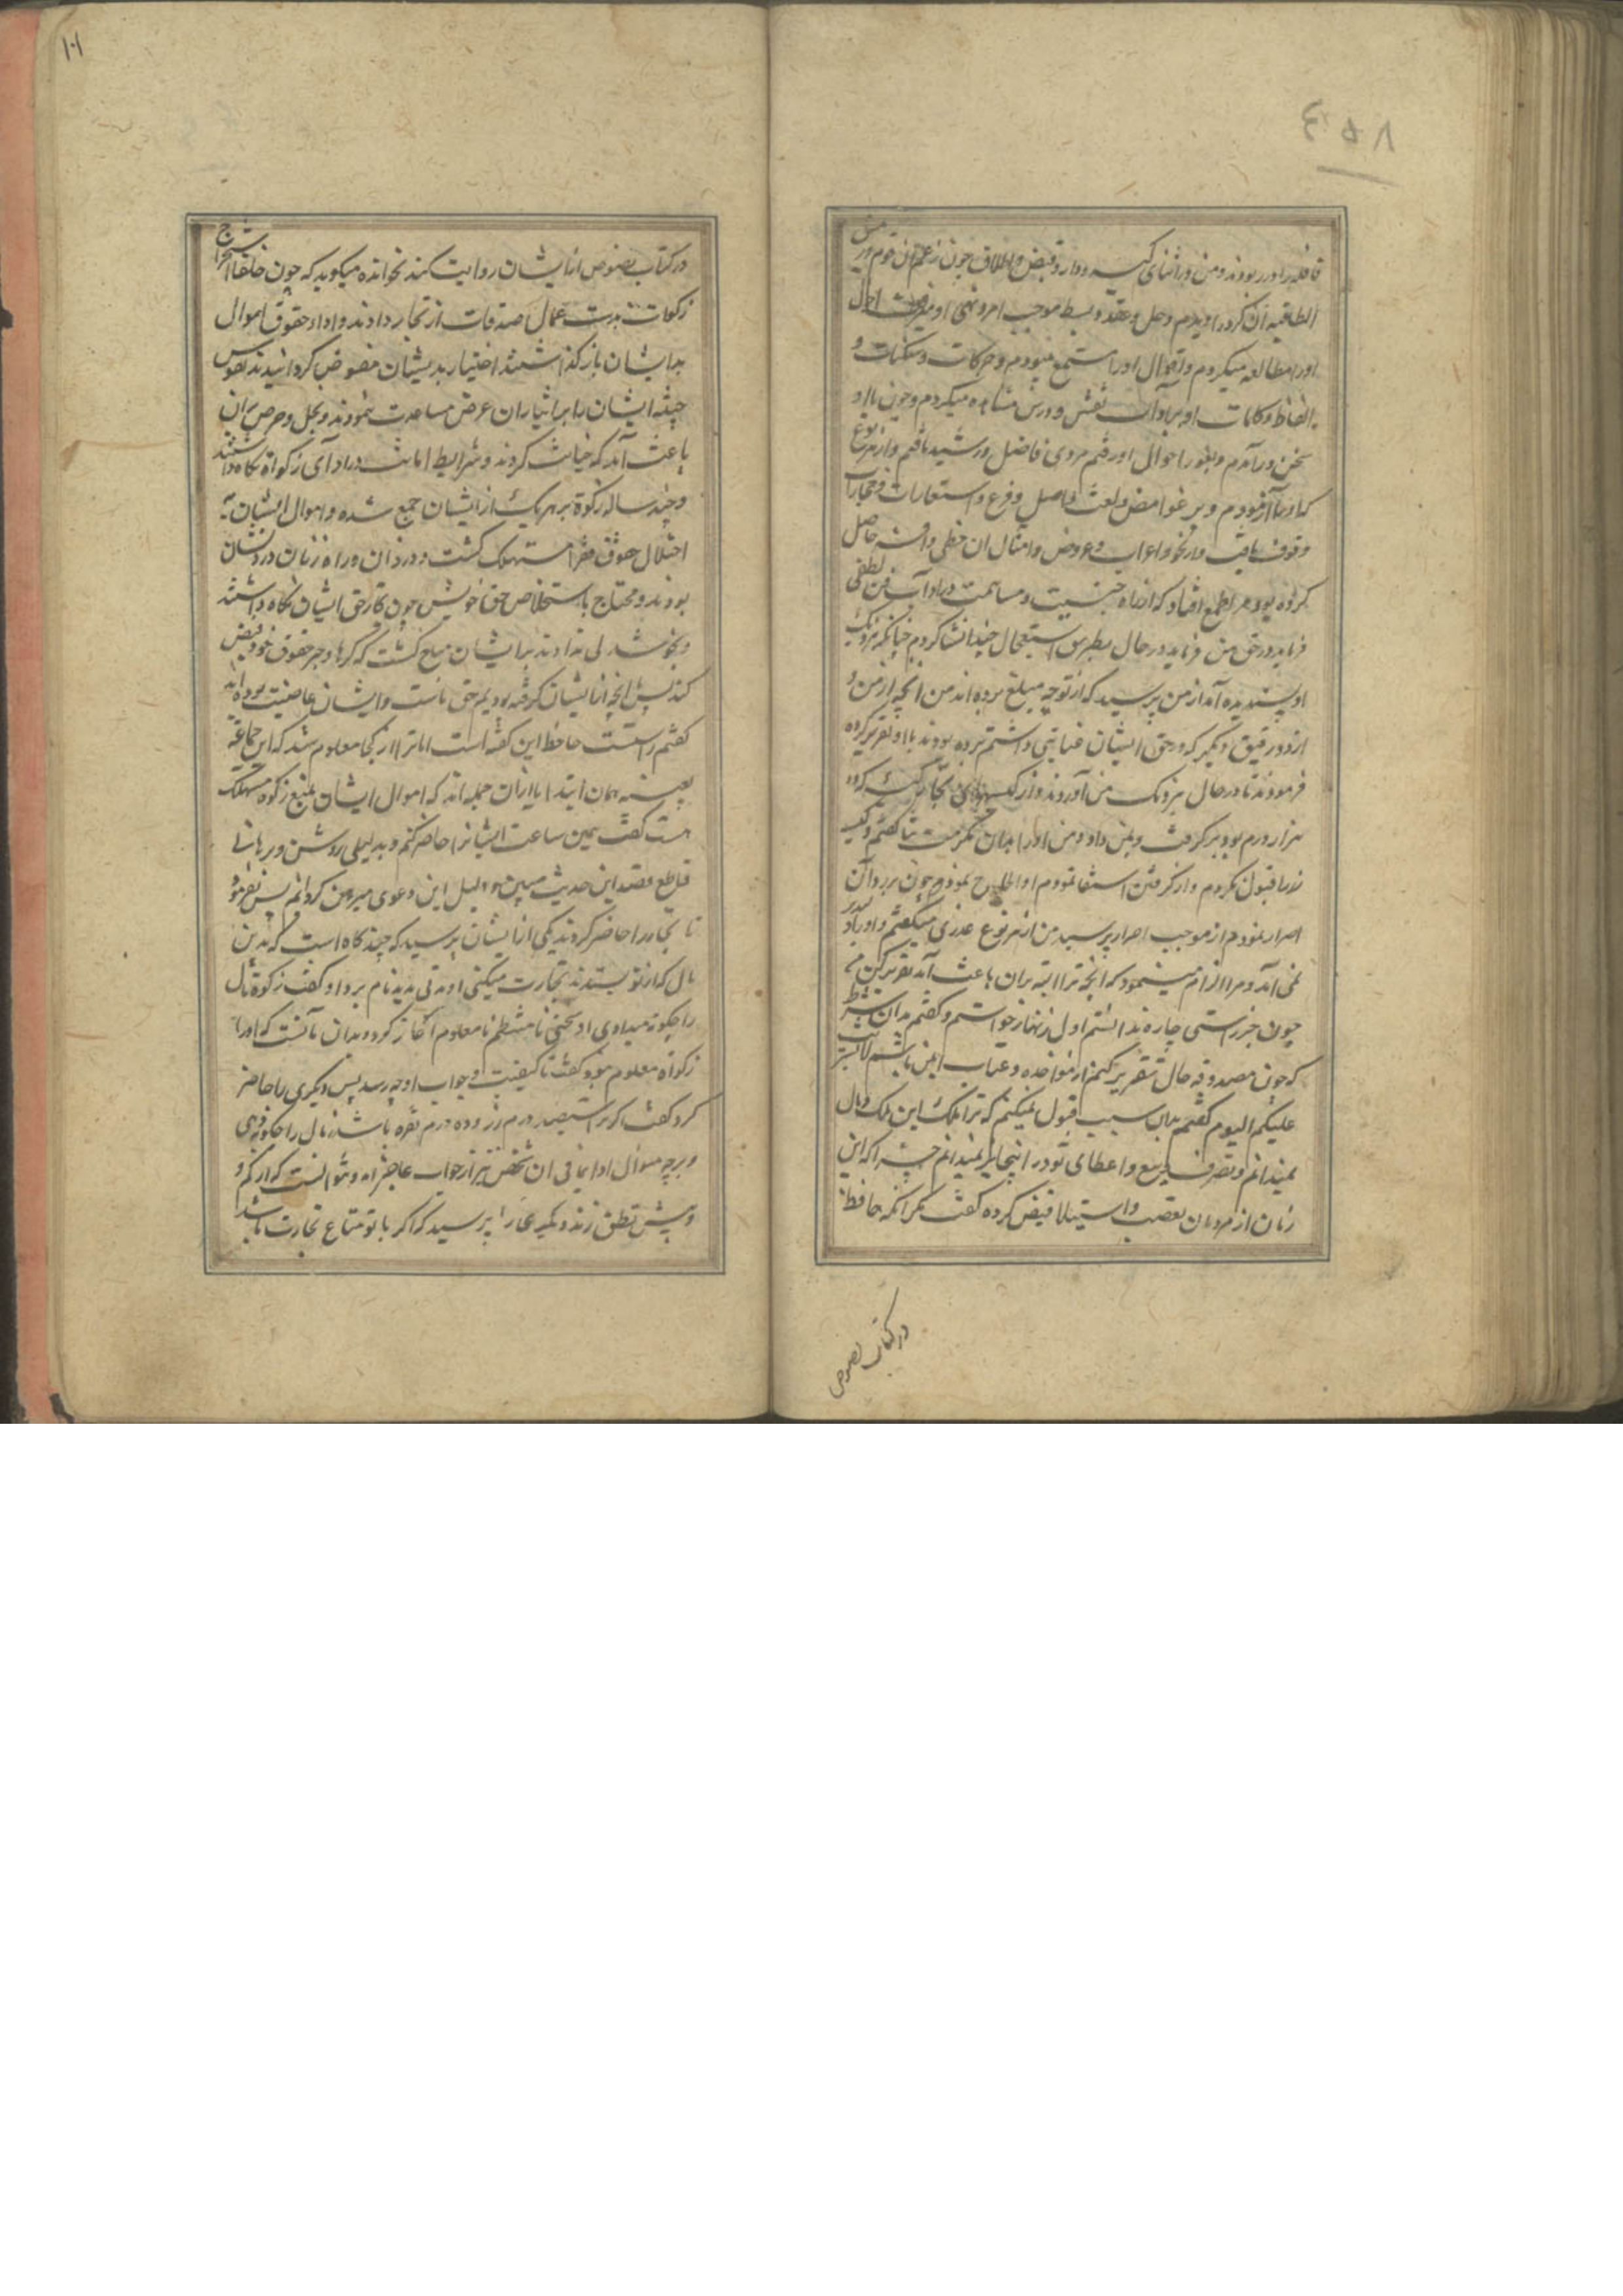 ۱۰۱
۸۵۴
قافله را در ربودند و من در اثنای کیسه و دار و قبض و اطلاق چون زعیم آن قوم و رئیس
الطاقیه آن کرد را دیدم و حل و عقد و بسط موجب امر و نهی او احوال
او را مطالعه میکردم و اقوال او را استمع مینمودم و حرکات و سکنات و
الفاظ و کلمات او بر آداب نفس و درس مشاهده میکردم و چون با او
سخن در آمدم و بغور احوال او رفتم مردی فاضل و رشید یافتم و از هر نوع
که او را آزمودم و بر غوامض و لغت و اصل و فرع و استعارات و مجازات
وقوف یافت و از نحو و اعراب و عروض و امثال آن حظی وافر حاصل
کرده بود مرا طمع افتاد که از راه جنسیت و مساهمت در آداب فن لطفی
فرماید در حق من فرماید در حال بطریق استعجال چند انشا کردم چنانکه نزدیک
او پسندیده آمد از من پرسید که از تو چه مبلغ برده اند من آنچه از من و
از دو رفیق دیگر که در حق ایشان عنایتی داشتم برده بودند با او تقریر کرده
فرمودند تا در حال نزدیک من آوردند و از کیسهای تجار کیسه که در
هزار درم بود برگرفت و بمن داد و من او را بدان مکرمت ثنا گفتم و کیسه
از ما قبول نکردم و از گرفتن استعفا نمودم او الحاح نمود و چون بر رد آن
اصرار نمودم از موجب اصرار پرسید من از هر نوع عذری میگفتم و او باور
نمی آمد و مرا الزام مینمود که آنچه ترا البته بران باعث آید تقریر کن من
چون جز راستی چاره ندانستم اول زنهار خواستم و گفتم بدان شرط
که چون مصدوقه حال تقریر کنم از مواخذه و عتاب ایمن باشم لا تثریب
علیکم الیوم گفتم بدان سبب قبول نمیکنم که ترا مالک این ملک و مال
نمیدانم و تصرف و بیع و اعطای تو در اینجا جایز نمیدانم چرا که این
زمان از مردمان بغصب و استیلا قبض کرده گفت مگر آنکه جاحظ
در کتاب لصوص
در کتاب لصوص از ایشان روایت کند نخوانده میگوید که چون خلفا استخراج
زکوات بدست عمال صدقات از تجار دادند و اداء حقوق اموال
بدایشان باز گذاشتند اختیار بدیشان مفوض گردانیدند نفوس
خبیثه ایشان را بر ایثار آن عرض مساعدت ننمودند و بخل و حرص بران
باعث آمد که خیانت کردند و شرایط امانت در ادای زکواة نگاه نداشتند
و چند ساله زکوة بر هر یک از ایشان جمع شده و اموال ایشان به
احتلال حقوق فقرا مستهلک گشت و دزدان و راه زنان درویشان
بودند و محتاج باستخلاص حق خویش چون تجار حق ایشان نگاه داشتند
و بخوشدلی ندادند بدایشان مباح گشت که کرها و جبر حقوق خود قبض
کنند پس آنچه از ایشان گرفته بودیم حق ماست و ایشان عاصیت بوده اند
گفتم راست است جاحظ این گفته است اما ترا از کجا معلوم شد که این جماعة
بعینه همان ابتدا یا ازان جمله اند که اموال ایشان بمنع زکوة مستهلک
هست گفت همین ساعت ایشانرا حاضر کنم و بدلیلی روشن و برهانی
قاطع قصد این حدیث مبین و دلیل این دعوی مبرهن گردانم پس بفرمود
تا تجار را حاضر کردند یکی از ایشان پرسید که چند گاه است که بدین
مال که از تو بستدند تجارت میکنی او مدتی مدید نام برد او گفت زکوة مال
را چگونه میدادی او سخنی نامنتظم نامعلوم آغاز کرد و بدان مانست که او را
زکواة معلوم نبود گفت تا کیفیت و جواب او چه رسد پس دیگری را حاضر
کرد گفت اگر ترا سیصد درم زر و ده درم نقره باشد زمال را چگونه دهی
و بر چه منوال ادا نمائی آن شخص نیز از جواب عاجز آمد و نتوانست که از کم و
و بیش نطق زند دیگری را پرسید که اگر با تو متاع تجارت باشد